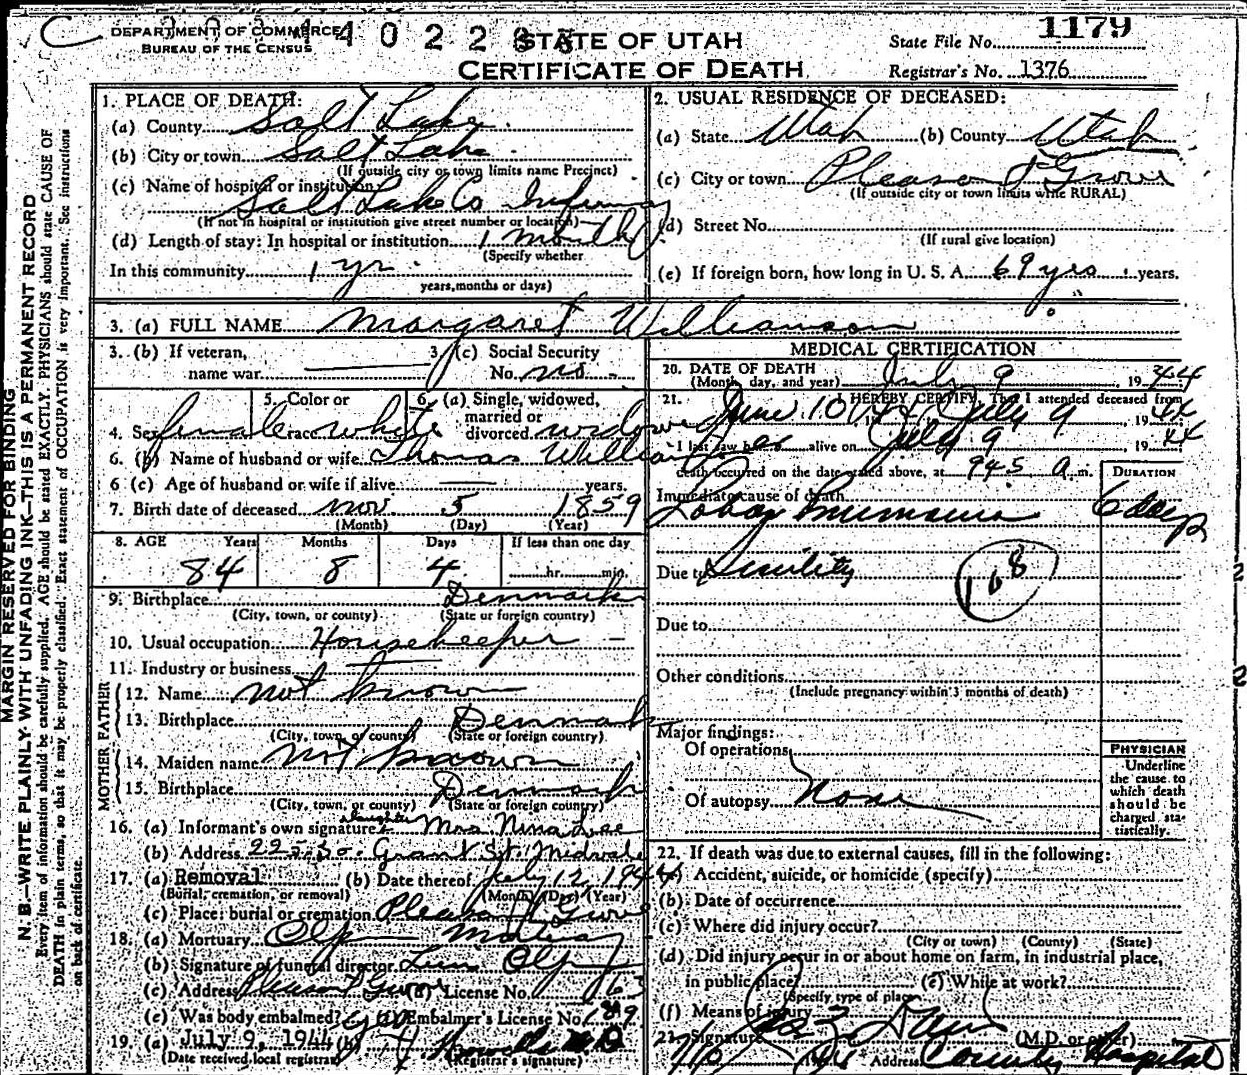 C DEPARTMENT OF COMMERCE
BUREAU OF THE CENSUS
STATE OF UTAH
CERTIFICATE OF DEATH
State File No. 1179
Registrar's No. 1376
MARGIN RESERVED FOR BINDING
N. B.—WRITE PLAINLY WITH UNFADING INK—THIS IS A PERMANENT RECORD
Every item of information should be carefully supplied. AGE should be stated EXACTLY. PHYSICIANS should state CAUSE OF
DEATH in plain terms, so that it may be properly classified. Exact statement of OCCUPATION is very important. See instructions
on back of certificate.
1. PLACE OF DEATH:
(a) County Salt Lake
(b) City or town Salt Lake
(If outside city or town limits name Precinct)
(c) Name of hospital or institution
Salt Lake Co Infirmary
(If not in hospital or institution give street number or location)
(d) Length of stay: In hospital or institution 1 month
(Specify whether
In this community 1 yr.
years, months or days)
2. USUAL RESIDENCE OF DECEASED:
(a) State Utah (b) County Utah
(c) City or town Pleasant Grove
(If outside city or town limits write RURAL)
(d) Street No.
(If rural give location)
(e) If foreign born, how long in U. S. A. 69 yrs. years.
3. (a) FULL NAME Margaret Williamson
3. (b) If veteran, name war
3. (c) Social Security No. no
4. Sex female
5. Color or race white
6. (a) Single, widowed, married or divorced widowed
6. (b) Name of husband or wife Thomas Williamson
6 (c) Age of husband or wife if alive years.
7. Birth date of deceased Nov 5 1859
(Month) (Day) (Year)
8. AGE Years Months Days If less than one day
84 8 4 hr. min.
9. Birthplace Denmark
(City, town, or county) (State or foreign country)
10. Usual occupation Housekeeper
11. Industry or business
FATHER
12. Name not known
13. Birthplace Denmark
(City, town, or county) (State or foreign country)
MOTHER
14. Maiden name not known
15. Birthplace Denmark
(City, town, or county) (State or foreign country)
daughter
16. (a) Informant's own signature Mrs Nina Lee
(b) Address 225 So. Grant St. Midvale
17. (a) Removal (b) Date thereof July 12, 1944
(Burial, cremation, or removal) (Month) (Day) (Year)
(c) Place: burial or cremation Pleasant Grove
18. (a) Mortuary Olpin Mortuary
(b) Signature of funeral director Olpin
(c) Address Pleasant Grove License No. 163
(e) Was body embalmed? yes Embalmer's License No. 189
19. (a) July 9, 1944 (b)
(Date received local registrar) (Registrar's signature)
MEDICAL CERTIFICATION
20. DATE OF DEATH
(Month, day, and year) July 9 1944
21. I HEREBY CERTIFY, That I attended deceased from
June 10 44 July 9 1944
I last saw her alive on July 9 1944
death occurred on the date stated above, at 945 a.m.
DURATION
Immediate cause of death
Lobar Pneumonia 6 days
Due to Senility 168
Due to
Other conditions
(Include pregnancy within 3 months of death)
Major findings:
Of operations
Of autopsy None
PHYSICIAN
Underline
the cause to
which death
should be
charged sta-
tistically.
22. If death was due to external causes, fill in the following:
(a) Accident, suicide, or homicide (specify)
(b) Date of occurrence
(c) Where did injury occur?
(City or town) (County) (State)
(d) Did injury occur in or about home on farm, in industrial place,
in public place? (e) While at work?
(Specify type of place)
(f) Means of injury
23. Signature (M.D. or other)
Address County Hospital